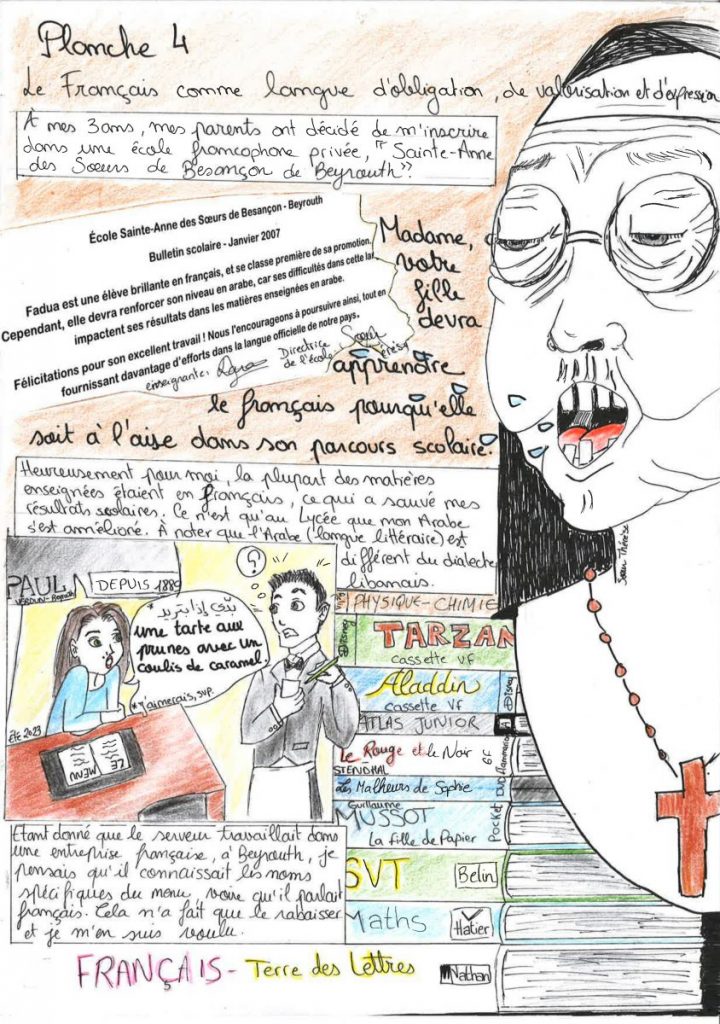 Planche 4
Le Français comme langue d'obligation, de valorisation et d'expression
À mes 3 ans, mes parents ont décidé de m'inscrire
dans une école francophone privée, "Sainte-Anne
des Sœurs de Besançon de Beyrouth".
École Sainte-Anne des Sœurs de Besançon - Beyrouth
Bulletin scolaire - Janvier 2007
Fadua est une élève brillante en français, et se classe première de sa promotion.
Cependant, elle devra renforcer son niveau en arabe, car ses difficultés dans cette la
impactent ses résultats dans les matières enseignées en arabe.
Félicitations pour son excellent travail ! Nous l'encourageons à poursuivre ainsi, tout en
fournissant davantage d'efforts dans la langue officielle de notre pays.
enseignante,
Directrice
de l'école
Sœur
Madame,
votre
fille
devra
apprendre
le français pourqu'elle
soit à l'aise dans son parcours scolaire.
Heureusement pour moi, la plupart des matières
enseignées étaient en français, ce qui a sauvé mes
résultats scolaires. Ce n'est qu'au Lycée que mon Arabe
s'est amélioré. À noter que l'Arabe (langue littéraire) est
différent du dialecte
libanais.
Sœur Thérèse
PAUL
VERDUN - Beyrouth
DEPUIS 1889
?
*بدّي إذا بتريد
une tarte aux
prunes avec un
coulis de caramel.
*j'aimerais, svp.
Été 2023
LE MENU
PHYSIQUE-CHIMIE
Disney
TARZAN
cassette VF
Aladdin
cassette VF
Disney
ATLAS JUNIOR
Le Rouge et le Noir
STENDHAL
GF
Flammarion
Les Malheurs de Sophie
DVD
Guillaume
MUSSOT
La fille de Papier
Pocket
SVT
Belin
Maths
Hatier
FRANÇAIS - Terre des Lettres
Nathan
Etant donné que le serveur travaillait dans
une entreprise française, à Beyrouth, je
pensais qu'il connaissait les noms
spécifiques du menu, voire qu'il parlait
français. Cela n'a fait que le rabaisser
et je m'en suis voulu.